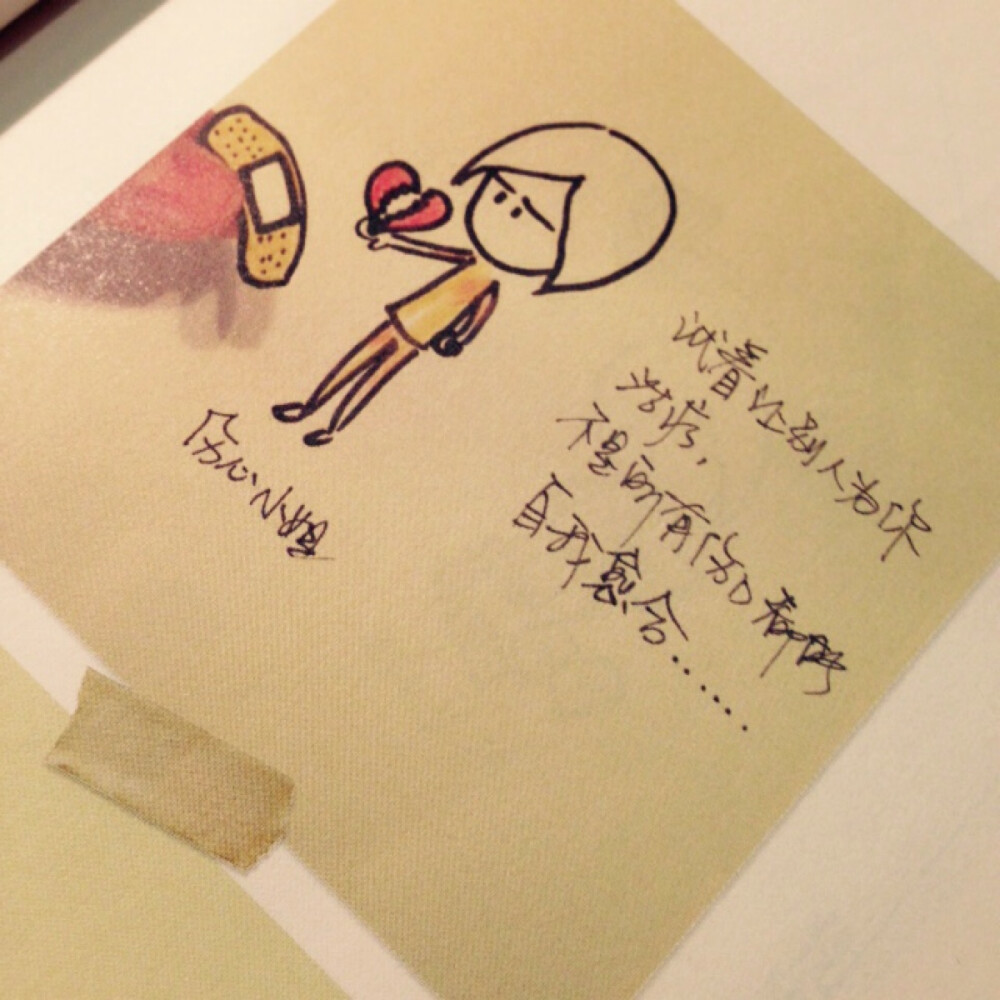 伤心小姐
试着让别人为你
治疗，
不是所有伤口都能
自我愈合……